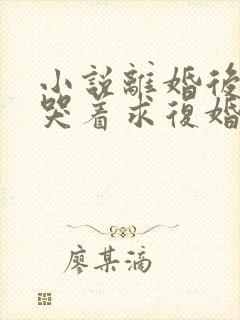 小説離婚後
哭着求復婚
廖某滴